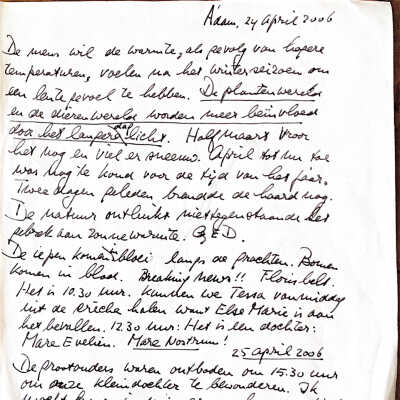 A'dam, 24 april 2006
De mens wil de warmte, als gevolg van hogere
temperaturen, voelen na het winterseizoen om
een lente gevoel te hebben. De plantenwereld
en de dierenwereld worden meer beïnvloed
door het langere daglicht. Half maart vroor
het nog en viel er sneeuw. April tot nu toe
was nog te koud voor de tijd van het jaar.
Twee dagen geleden brandde de haard nog.
De natuur ontluikt niettegenstaande het
gebrek aan zonnewarmte. QED.
De iepen komen in bloei langs de grachten. Bomen
komen in blad. Breaking news!! Floris belt.
Het is 10.30 uur. Kunnen we Tessa vanmiddag
uit de crèche halen want Else Marie is aan
het bevallen. 12.30 uur: Het is een dochter:
Mare Evelien. Mare Nostrum!
25 april 2006
De grootouders waren ontboden om 15.30 uur
om onze kleindochter te bewonderen. Ik